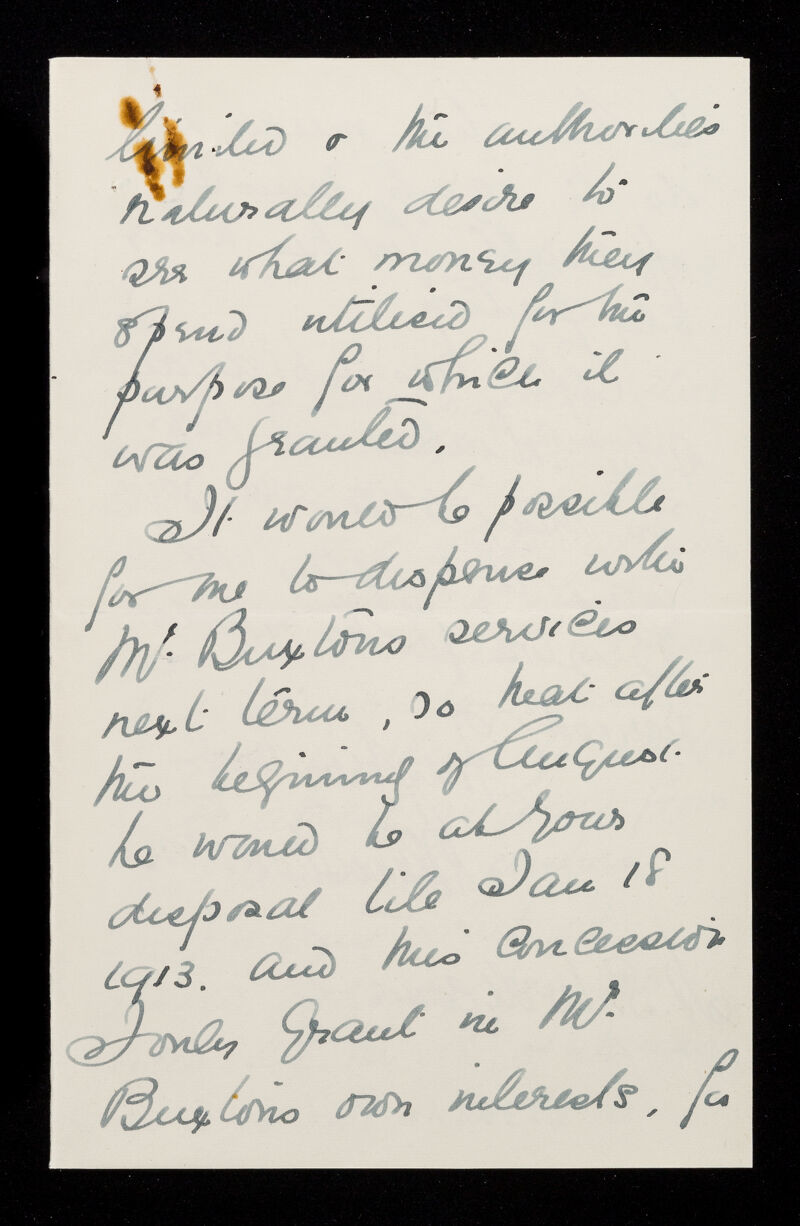 limited & the authorities
naturally desire to
see what money they
spend utilised for the
purpose for which it
was granted.
It would be possible
for me to dispense with
Mr. Buxtons services
next term, so that after
the begining of August
he would be at your
disposal till Jan 18
1913. and this concession
I only grant in Mr.
Buxtons own interests, for